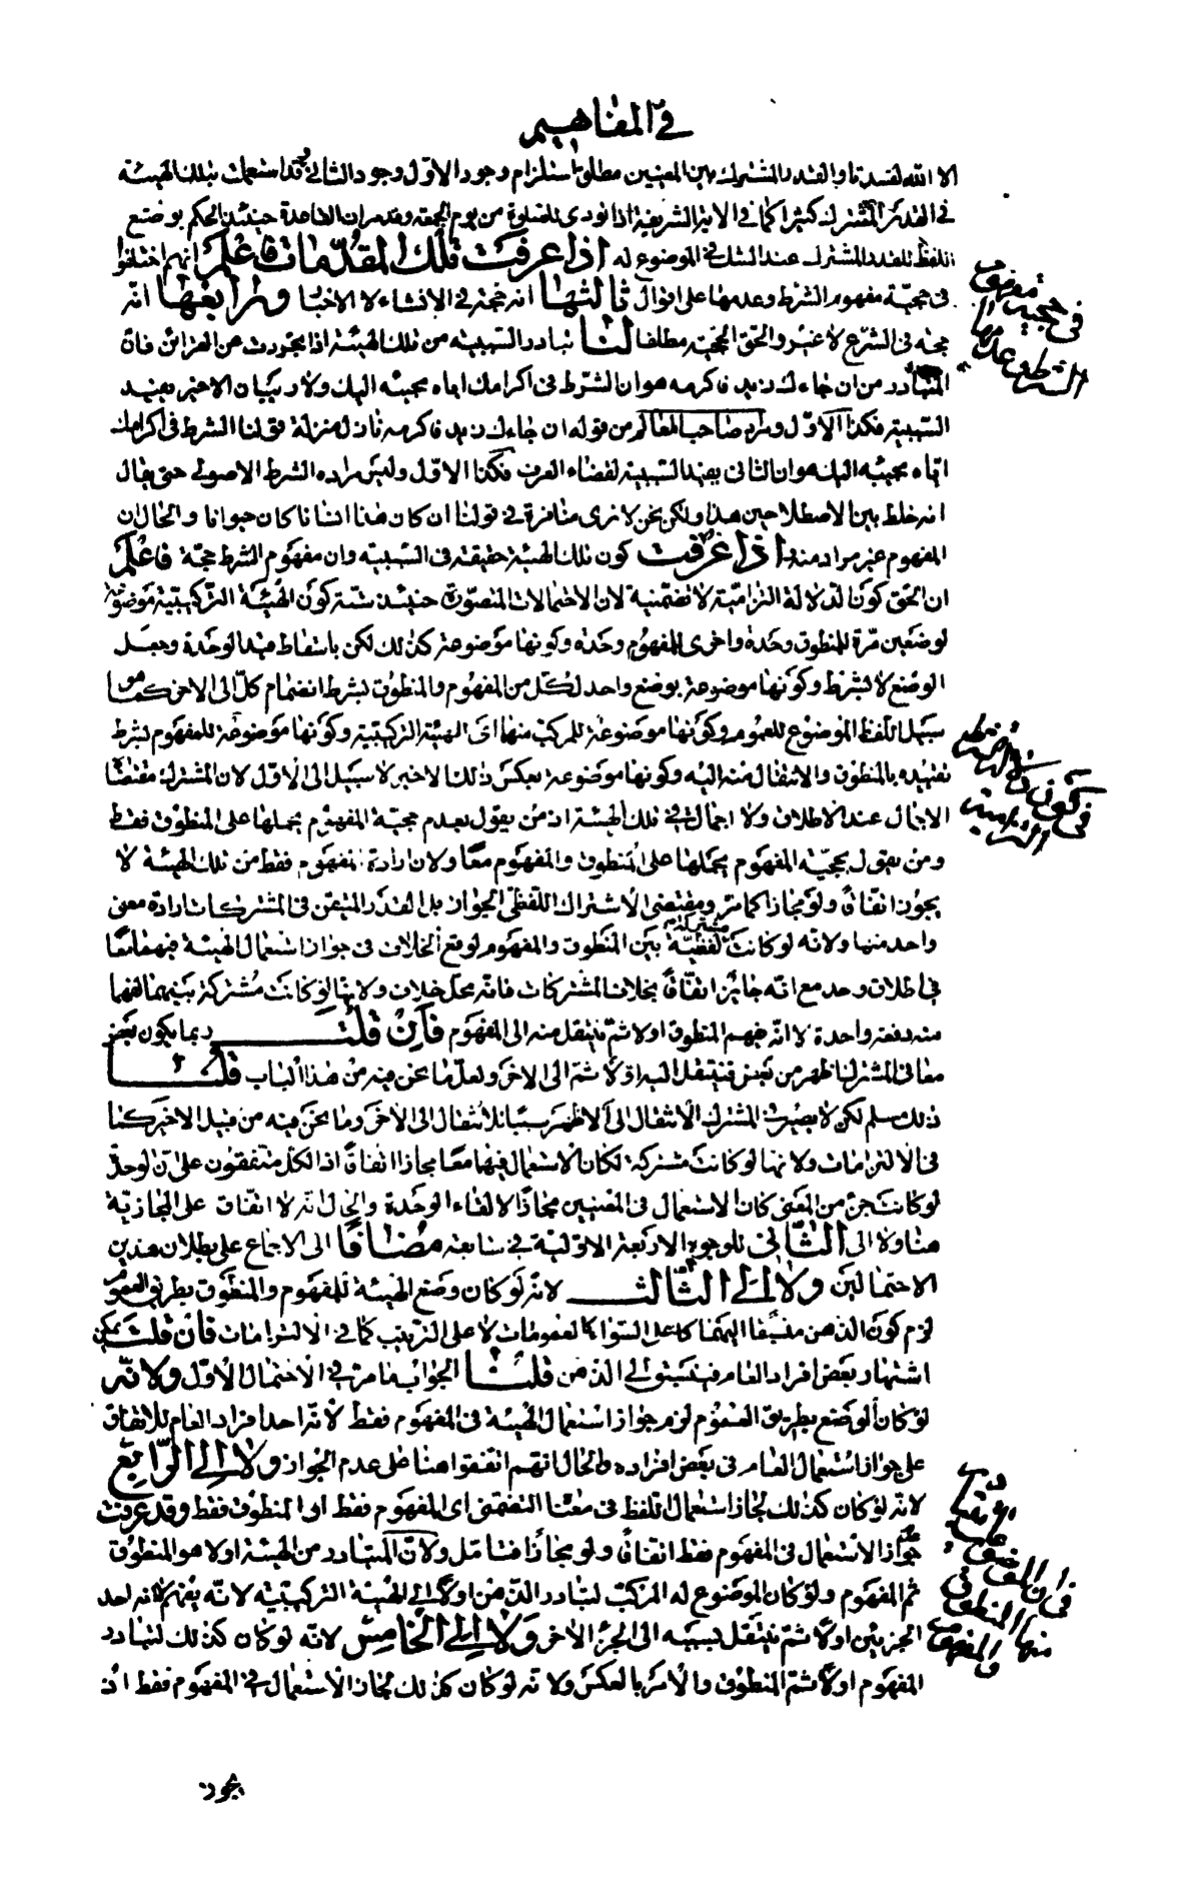 في المفاهيم
الا الله لفسدتا والقدر المشترك بين المعنيين مطلق استلزام وجود الاوّل وجود الثاني وقد استعملت تلك الهيئة
في القدر المشترك كثيرا كما في الاية الشريفة اذا نودى للصلوة من يوم الجمعة وقد مر ان القاعدة حينئذ الحكم بوضع
اللفظ للقدر المشترك عند الشك في الموضوع له اذا عرفت تلك المقدّمات فاعلم انهم اختلفوا
في حجيّة مفهوم الشرط وعدمها على اقوال ثالثها انه حجة في الانشاء لا الاخبار ورابعها انّه
حجة في الشرّع لا غير والحق الحجّية مطلقا لنا تبادر السببية من تلك الهيئة اذا تجردت عن القرائن فان
المتبادر من ان جاءك زيد فاكرمه هو ان الشرّط في اكرامك اياه مجيئه اليك ولا ريب ان الاخير يفيد
السّببية فكذا الاوّل ومراد صاحب المعالم من قوله ان جاءك زيد فاكرمه نازل منزلة قولنا الشرط في اكرامك
ايّاه مجيئه اليك هو ان الثاني يفيد السّببية لقضاء العرف فكذا الاوّل وليس مراده الشرط الاصولي حتى يقال
انه خلط بين الاصطلاحين هذا ولكن نحن لا نرى منافرة في قولنا ان كان هذا انسانا كان حيوانا والحال ان
المفهوم غير مراد منه اذا عرفت كون تلك الهيئة حقيقة في السّببية وان مفهوم الشرط حجّة فاعلم
ان الحق كون الدّلالة التزاميّة لا تضمّنية لان الاحتمالات المتصوّرة حينئذ ستة كون الهيئة التركيبية موضوعة
لوضعين مرّة للمنطوق وحده واخرى للمفهوم وحده وكونها موضوعة كذلك لكن باسقاط قيد الوحدة وجعل
الوضع لا بشرط وكونها موضوعة بوضع واحد لكلّ من المفهوم والمنطوق بشرط انضمام كلّ الى الاخر كما هو
سبيل اللّفظ الموضوع للعموم وكونها موضوعة للمركب منهما اى الهيئة التركيبية وكونها موضوعة للمفهوم بشرط
تقييده بالمنطوق والانتقال منه اليه وكونها موضوعة بعكس ذلك الاخير لا سبيل الى الاوّل لان المشترك مقتضاه
الاجمال عند الاطلاق ولا اجمال في تلك الهيئة اذ من يقول بعدم حجية المفهوم يحملها على المنطوق فقط
ومن يقول بحجيّة المفهوم يحملها على المنطوق والمفهوم معًا ولان ارادة المفهوم فقط من تلك الهيئة لا
يجوز اتفاقًا ولو مجازا كما مرّ ومقتضى الاشتراك اللّفظي الجواز بل القدر المتيقن في المشتركات ارادة معنى
واحد منها ولانه لو كانت مشتركة لفظيّة بين المنطوق والمفهوم لوقع الخلاف في جواز استعمال الهيئة فيهما معًا
في اطلاق واحد مع انّه جائز اتفّاقًا بخلاف المشتركات فانّه محل خلاف ولانها لو كانت مشتركة بينهما لفهما
منه دفعة واحدة لا انّه يفهم المنطوق اولا ثمّ ينتقل منه الى المفهوم فان قلت ربما يكون بعض
معاني المشترك اظهر من بعض فينتقل اليه اوّلا ثمّ الى الاخر ولعلّ ما نحن فيه من هذا الباب قلنا
ذلك مسلم لكن لا يصير في المشترك الانتقال الى الاظهر سببا للانتقال الى الاخر وما نحن فيه من قبيل الاخير كما
في الالتزامات ولانها لو كانت مشتركة لكان الاستعمال فيهما معا مجازا اتفاقًا اذ الكل متفقون على ان الوحدة
لو كانت جزء من المعنى كان الاستعمال في المعنيين مجازًا لالغاء الوحدة والحال انّه لا اتفاق على المجازية
هنا ولا الى الثّاني للوجوه الاربعة الاوّلية في سابقه مضافًا الى الاجماع على بطلان هذين
الاحتمالين ولا الى الثّالث لانّه لو كان وضع الهيئة للمفهوم والمنطوق بطريق العموم
لزم كون الذهن منتقلا اليهما كلا على السّواء كالعمومات لا على الترتيب كما في الالتزامات فان قلت يمكن
اشتهار بعض افراد العام فيسبق الى الذهن قلنا الجواب ما مرّ في الاحتمال الاوّل ولانّه
لو كان الوضع بطريق العموم لزم جواز استعمال الهيئة في المفهوم فقط لانّه احد افراد العام للاتفاق
على جواز استعمال العام في بعض افراده والحال انهم اتفقوا هنا على عدم الجواز ولا الى الرّابع
لانّه لو كان كذلك لجاز استعمال اللفظ في معناه التضمّني اى المفهوم فقط او المنطوق فقط وقد عرفت
عدم جواز الاستعمال في المفهوم فقط اتفاقًا ولو مجازًا فتامّل ولانّ المتبادر من الهيئة اولا هو المنطوق
ثم المفهوم ولو كان الموضوع له المركب لتبادر الذّهن اولا الى الهيئة التركيبية لانّه يفهم لانه احد
الجزئين اولا ثمّ ينتقل بسببه الى الجزء الاخر ولا الى الخامس لانّه لو كان كذلك لتبادر
المفهوم اولا ثمّ المنطوق والامر بالعكس ولانّه لو كان كذلك لجاز الاستعمال في المفهوم فقط اذ
في حجية مفهوم
الشرط وعدمها
في كون
التزامية
في ان
المنطوق
والمفهوم
يجوز